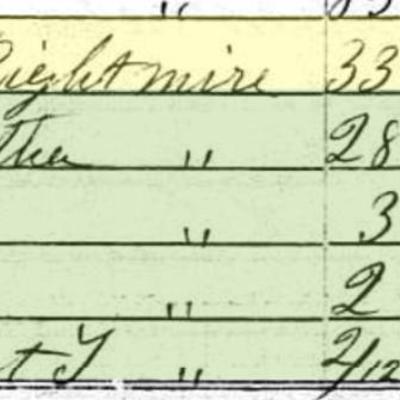 "
Rightmire 33
tha " 28
" 3
" 2
t T " 2/12